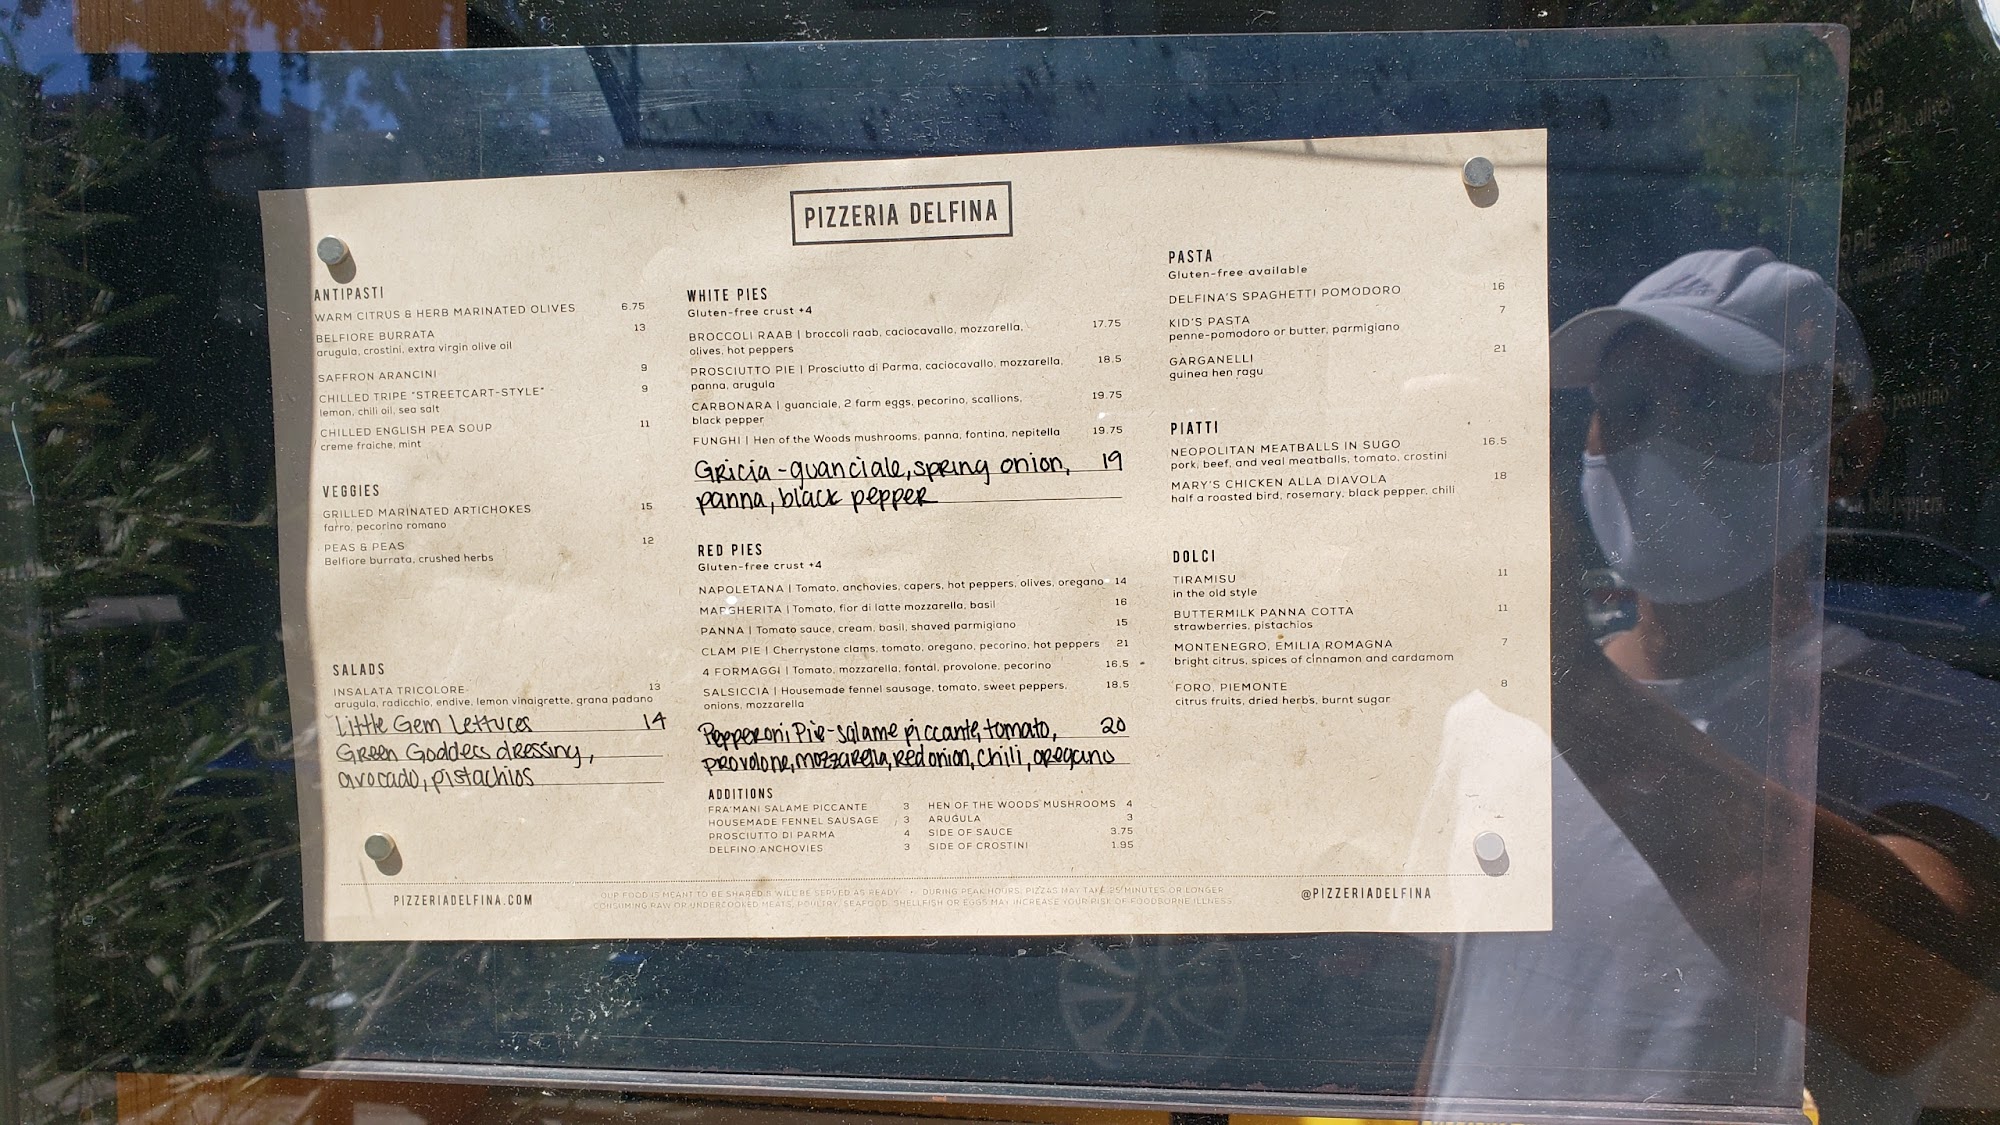 PIZZERIA DELFINA
ANTIPASTI
WARM CITRUS & HERB MARINATED OLIVES 6.75
BELFIORE BURRATA 13
arugula, crostini, extra virgin olive oil
SAFFRON ARANCINI 9
CHILLED TRIPE "STREETCART-STYLE" 9
lemon, chili oil, sea salt
CHILLED ENGLISH PEA SOUP 11
creme fraiche, mint
VEGGIES
GRILLED MARINATED ARTICHOKES 15
farro, pecorino romano
PEAS & PEAS 12
Belfiore burrata, crushed herbs
SALADS
INSALATA TRICOLORE 13
arugula, radicchio, endive, lemon vinaigrette, grana padano
Little Gem Lettuces 14
Green Goddess dressing,
avocado, pistachios
WHITE PIES
Gluten-free crust +4
BROCCOLI RAAB | broccoli raab, caciocavallo, mozzarella, 17.75
olives, hot peppers
PROSCIUTTO PIE | Prosciutto di Parma, caciocavallo, mozzarella, 18.5
panna, arugula
CARBONARA | guanciale, 2 farm eggs, pecorino, scallions, 19.75
black pepper
FUNGHI | Hen of the Woods mushrooms, panna, fontina, nepitella 19.75
Gricia - guanciale, spring onion, 19
panna, black pepper
RED PIES
Gluten-free crust +4
NAPOLETANA | Tomato, anchovies, capers, hot peppers, olives, oregano 14
MARGHERITA | Tomato, fior di latte mozzarella, basil 16
PANNA | Tomato sauce, cream, basil, shaved parmigiano 15
CLAM PIE | Cherrystone clams, tomato, oregano, pecorino, hot peppers 21
4 FORMAGGI | Tomato, mozzarella, fontal, provolone, pecorino 16.5
SALSICCIA | Housemade fennel sausage, tomato, sweet peppers, 18.5
onions, mozzarella
Pepperoni Pie - salame piccante, tomato, 20
provolone, mozzarella, red onion, chili, oregano
ADDITIONS
FRA'MANI SALAME PICCANTE 3 HEN OF THE WOODS MUSHROOMS 4
HOUSEMADE FENNEL SAUSAGE 3 ARUGULA 3
PROSCIUTTO DI PARMA 4 SIDE OF SAUCE 3.75
DELFINO ANCHOVIES 3 SIDE OF CROSTINI 1.95
PASTA
Gluten-free available
DELFINA'S SPAGHETTI POMODORO 16
KID'S PASTA 7
penne-pomodoro or butter, parmigiano
GARGANELLI 21
guinea hen ragu
PIATTI
NEOPOLITAN MEATBALLS IN SUGO 16.5
pork, beef, and veal meatballs, tomato, crostini
MARY'S CHICKEN ALLA DIAVOLA 18
half a roasted bird, rosemary, black pepper, chili
DOLCI
TIRAMISU 11
in the old style
BUTTERMILK PANNA COTTA 11
strawberries, pistachios
MONTENEGRO, EMILIA ROMAGNA 7
bright citrus, spices of cinnamon and cardamom
FORO, PIEMONTE 8
citrus fruits, dried herbs, burnt sugar
PIZZERIADELFINA.COM
OUR FOOD IS MEANT TO BE SHARED & WILL BE SERVED AS READY • DURING PEAK HOURS, PIZZAS MAY TAKE 25 MINUTES OR LONGER
CONSUMING RAW OR UNDERCOOKED MEATS, POULTRY, SEAFOOD, SHELLFISH OR EGGS MAY INCREASE YOUR RISK OF FOODBORNE ILLNESS.
@PIZZERIADELFINA